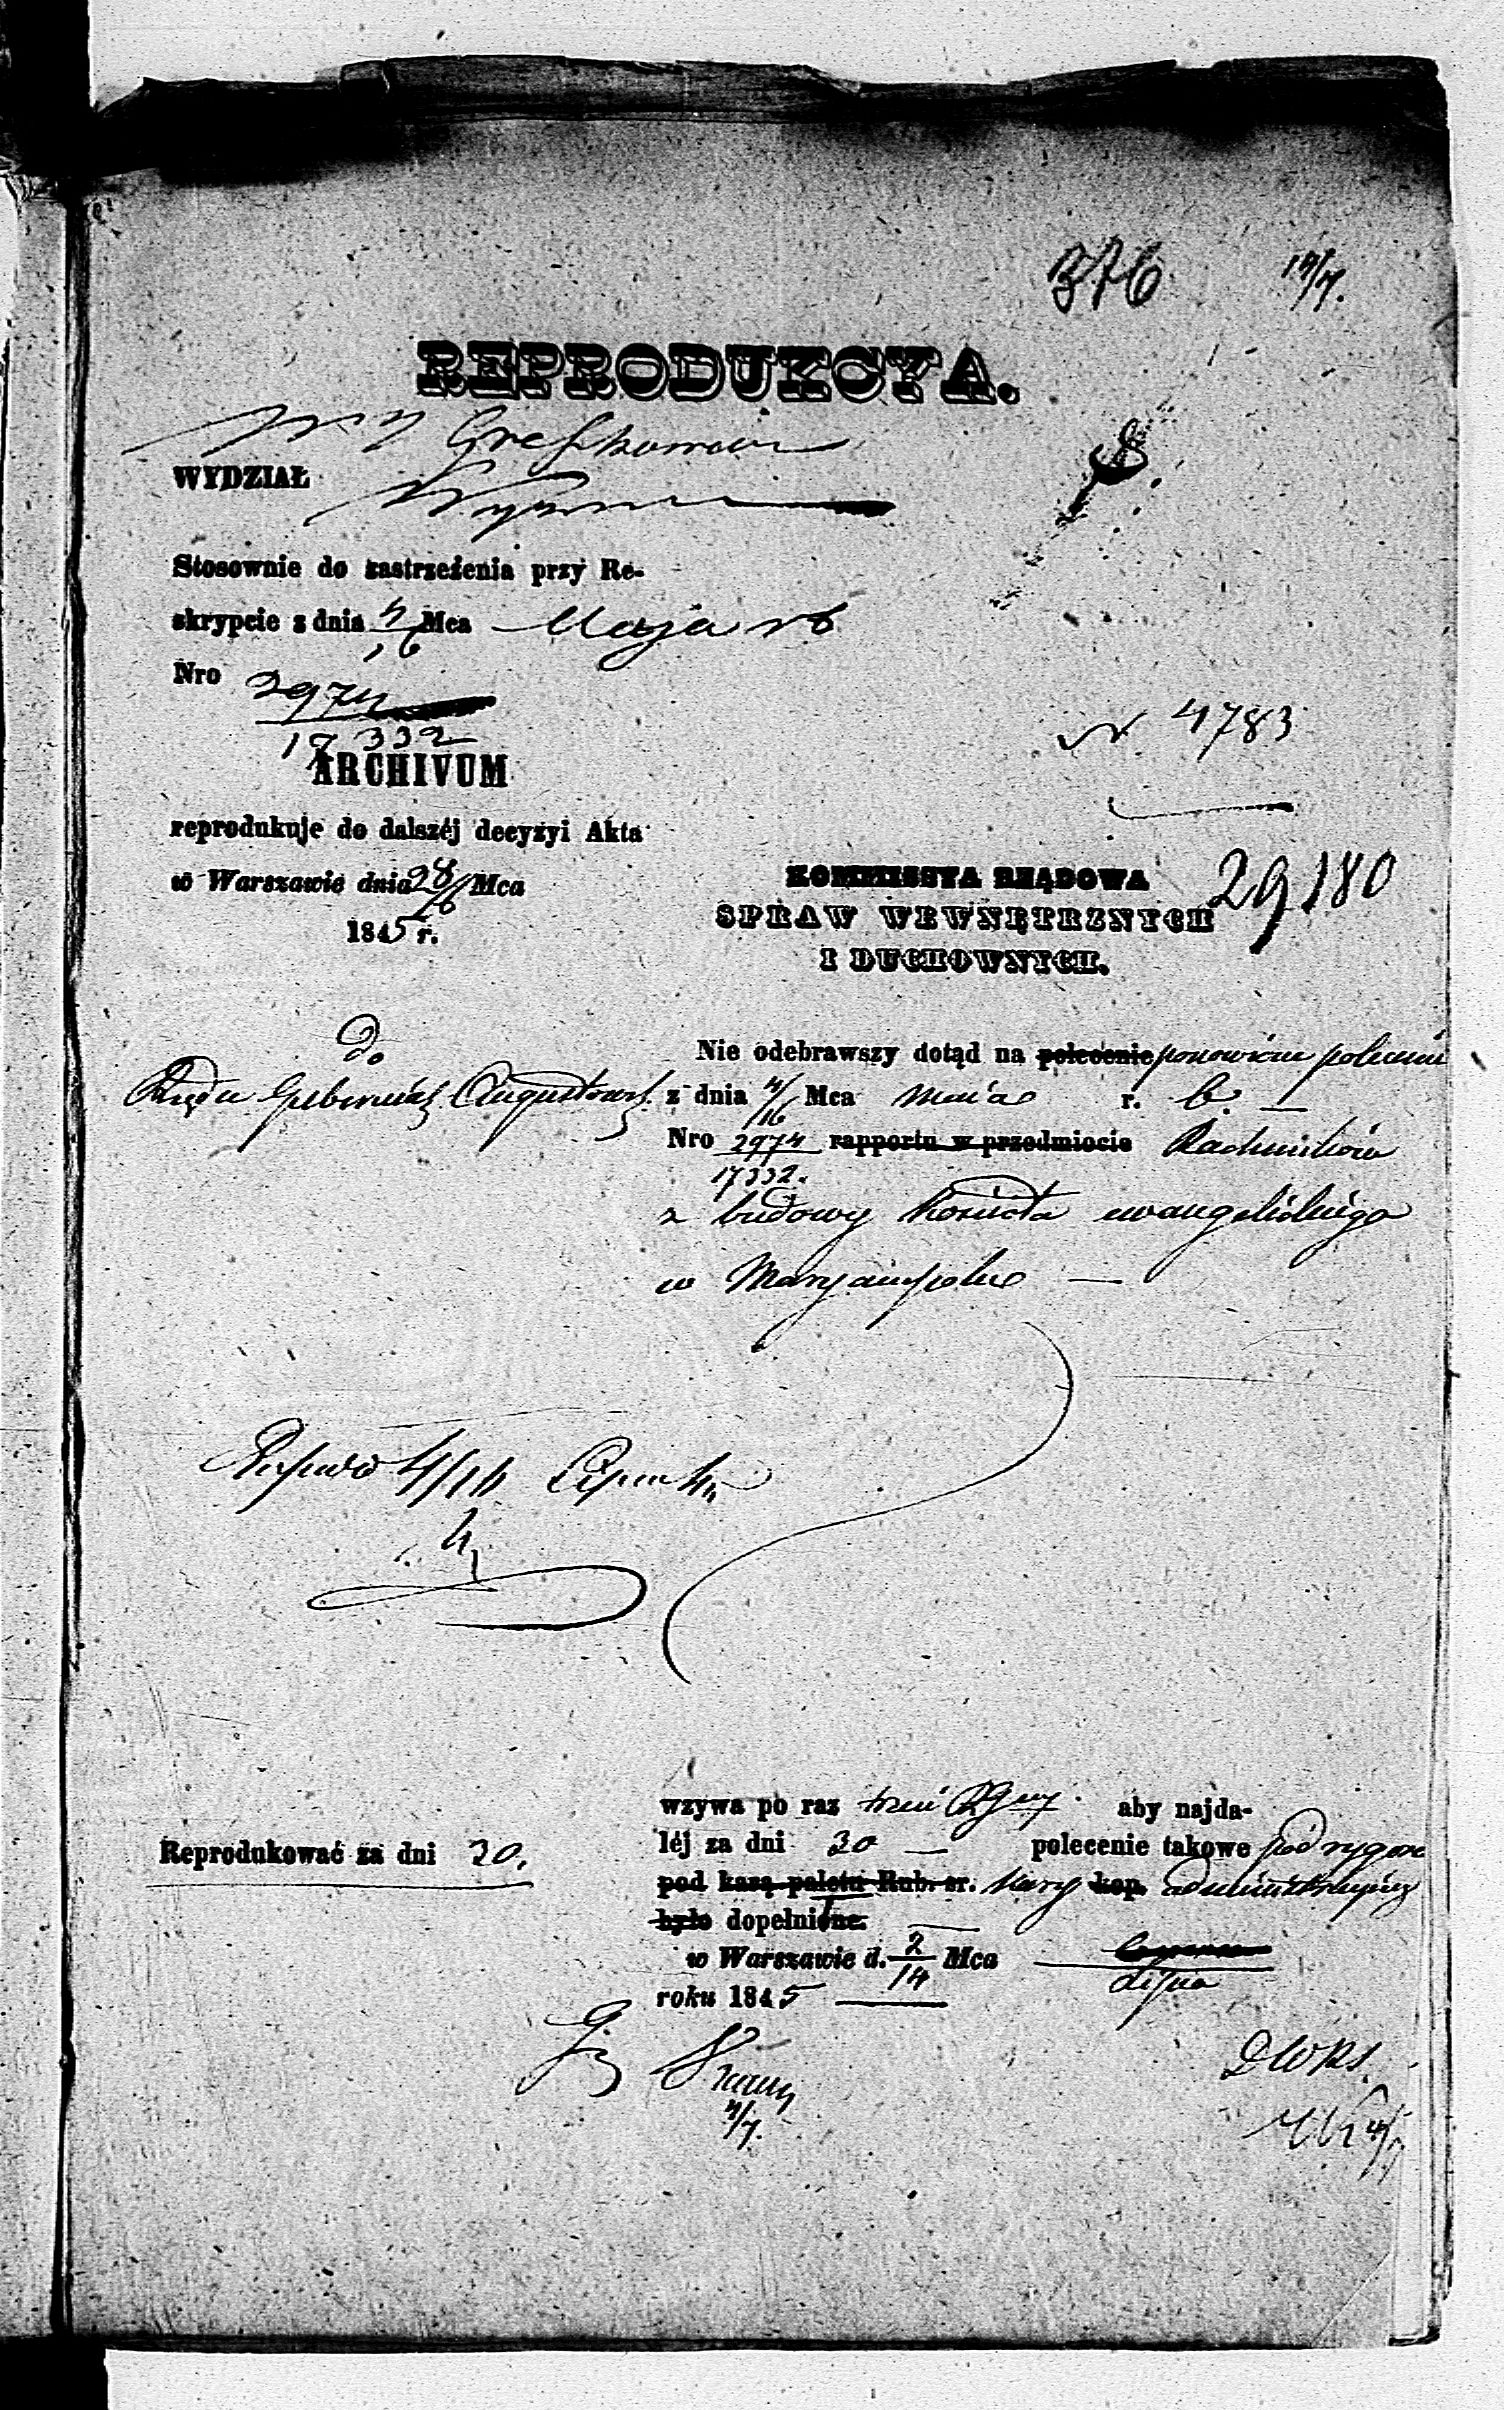 376 17/7.
REPRODUKCYA.
WYDZIAŁ
Stosownie do zastrzeżenia przy Re-
skrypcie z dnia 4/16 Mca Maja r b
Nro 2974
17332
ARCHIVUM
reprodukuje do dalszéj decyzyi Akta
w Warszawie dnia 28/6 Mca
1845 r.
N. 4783
29180
KOMMISSYA RZĄDOWA
SPRAW WEWNĘTRZNYCH
I DUCHOWNYCH.
do
Rządu Gubernial. Augustows.
Nie odebrawszy dotąd na polecenie ponowione polecenie
z dnia 4/16 Mca Maia r. b. —
Nro 2974 rapportu w przedmiocie Rachunków
17332.
z budowy Kościoła ewangelickiego
w Maryampolu —
4/16
wzywa po raz trzeci aby najda-
léj za dni 30 — polecenie takowe pod rygorem
pod karą paletu Rub. sr. kary kop. administracyjnéj
było dopełnione.
Reprodukować za dni 30.
w Warszawie d. 2/14 Mca
Lipca
roku 1845
4/7.